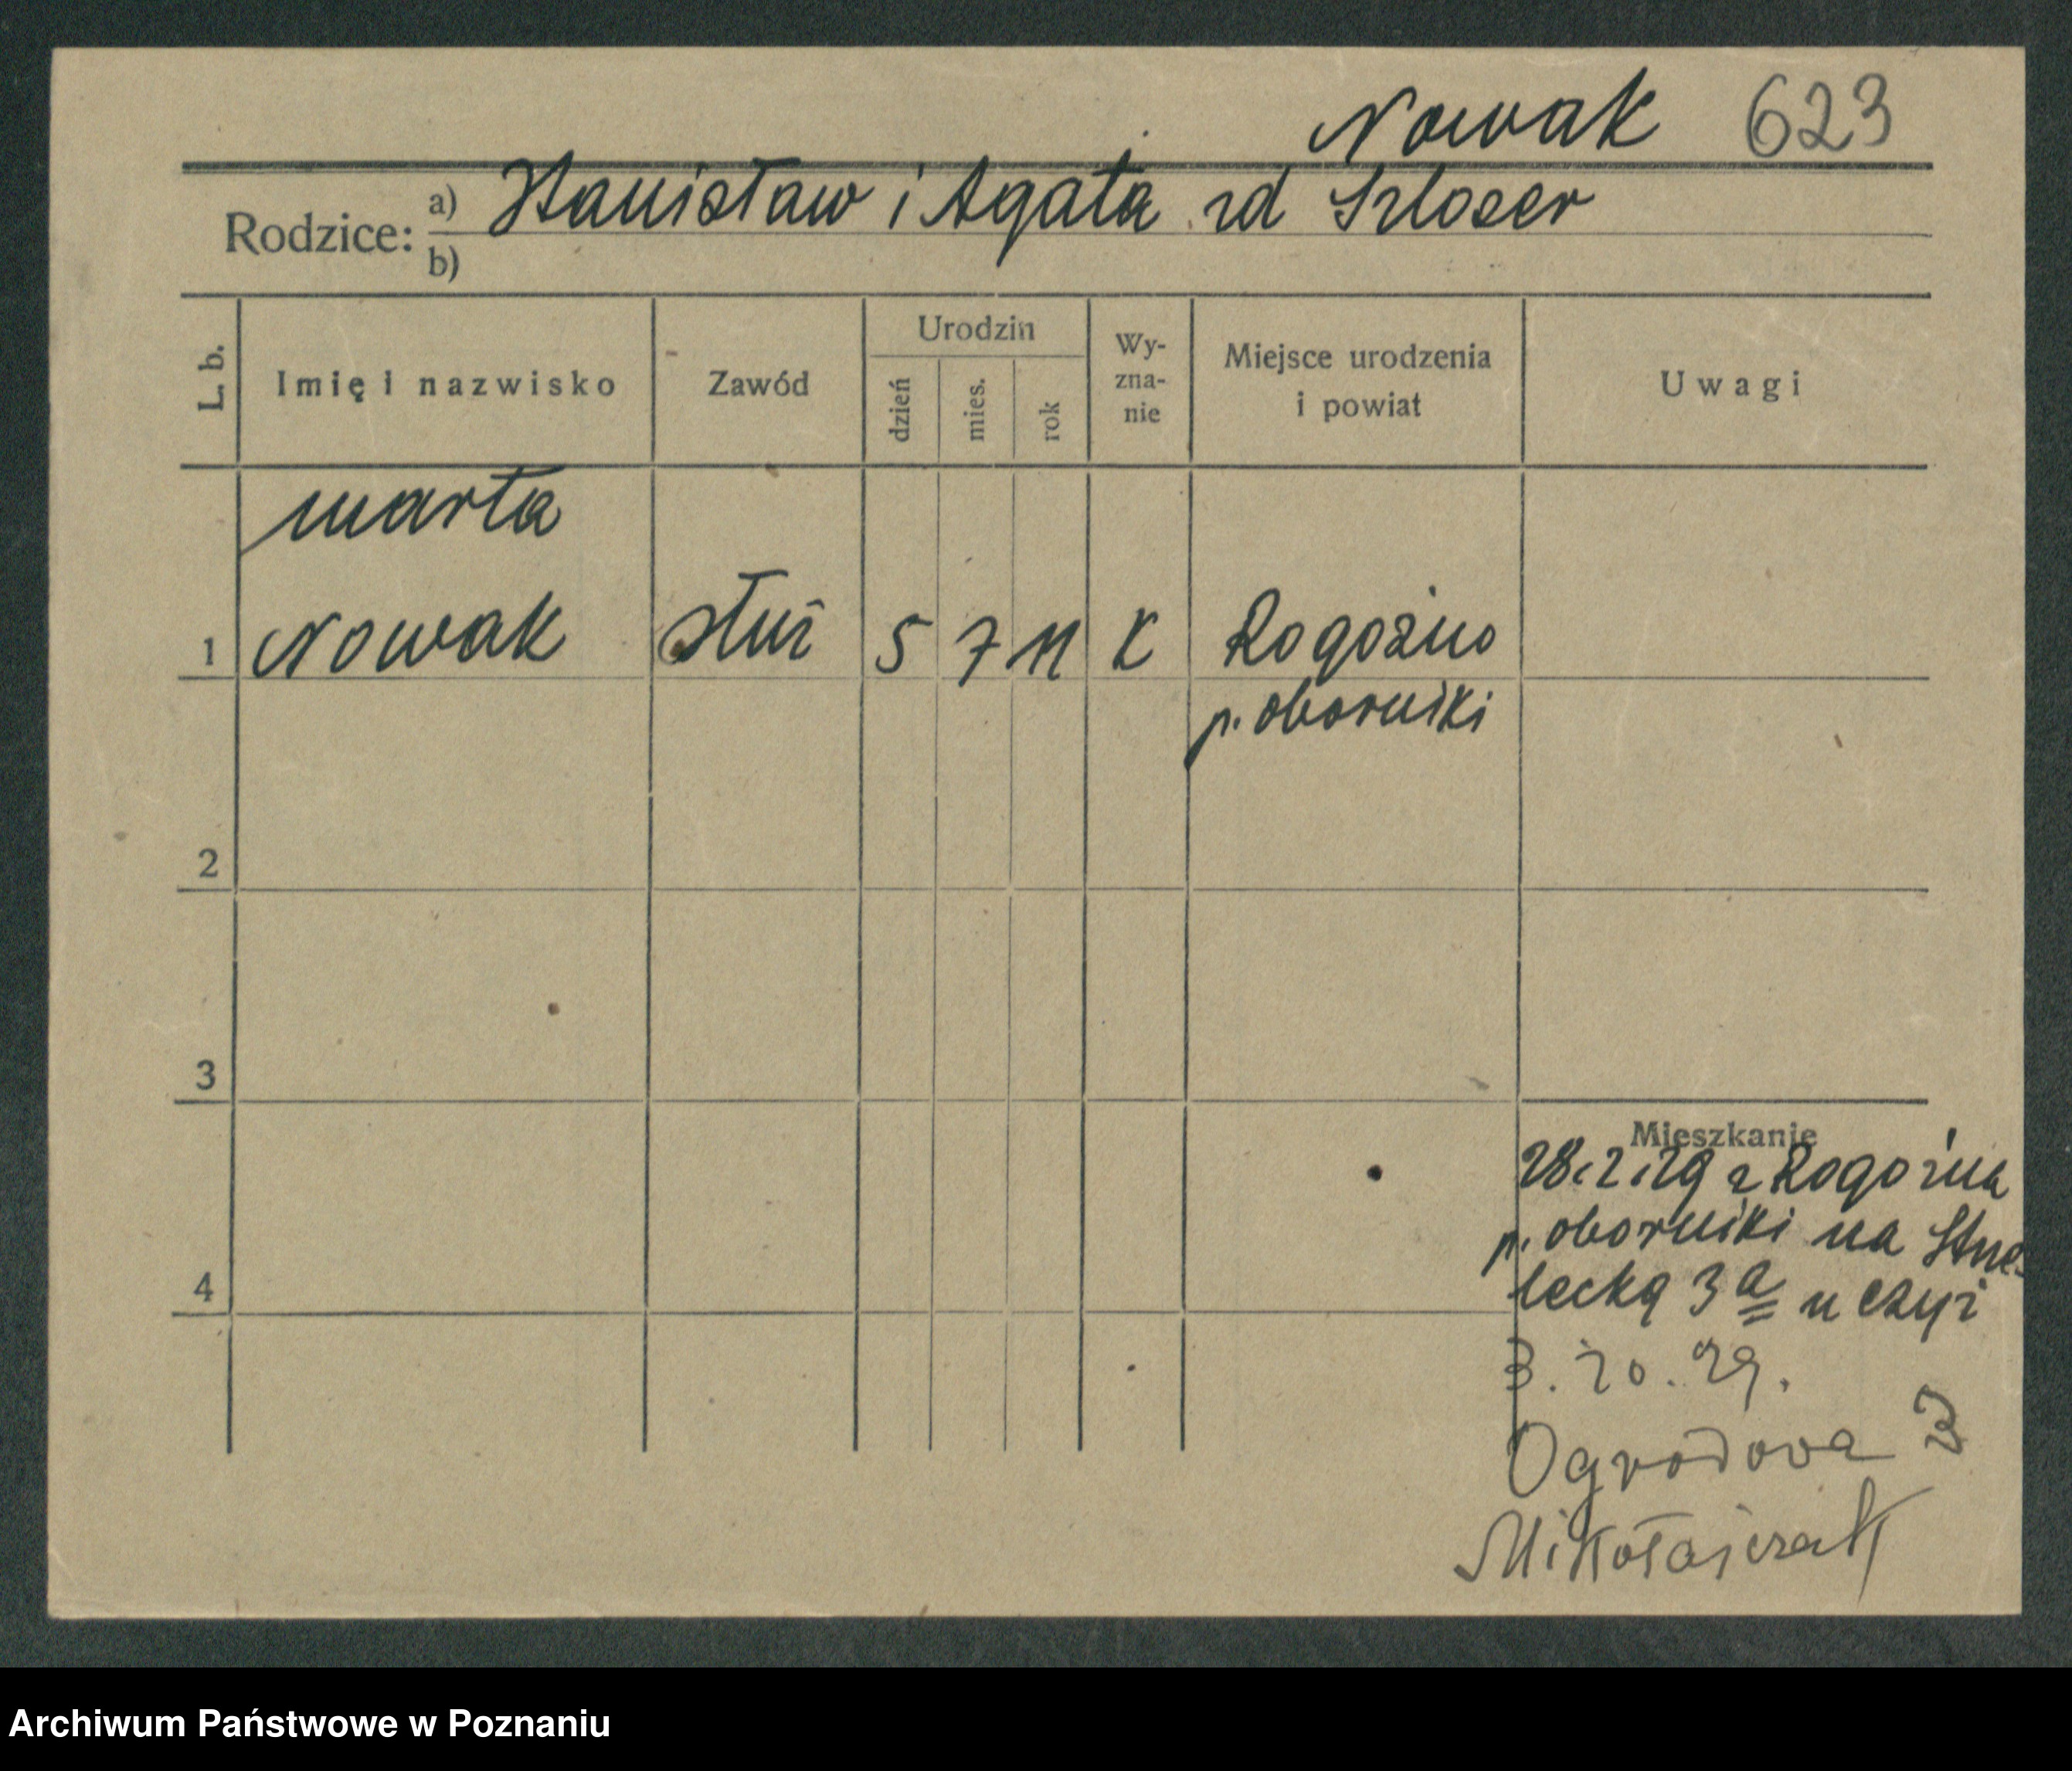 Nowak 623
Rodzice: a) Stanisław i Agata zd Szloser
b)
L. b. Imię i nazwisko Zawód Urodzin dzień mies. rok Wy-zna-nie Miejsce urodzenia i powiat Uwagi
Marta
1 Nowak służ 5 7 11 K Rogoźno
p. oborniki
2
3
Mieszkanie
28.2.29 z Rogoźna
p. oborniki na Strze-
4 lecką 3a u
3. 10. 29.
Ogrodova
Mikołajczak
Archiwum Państwowe w Poznaniu